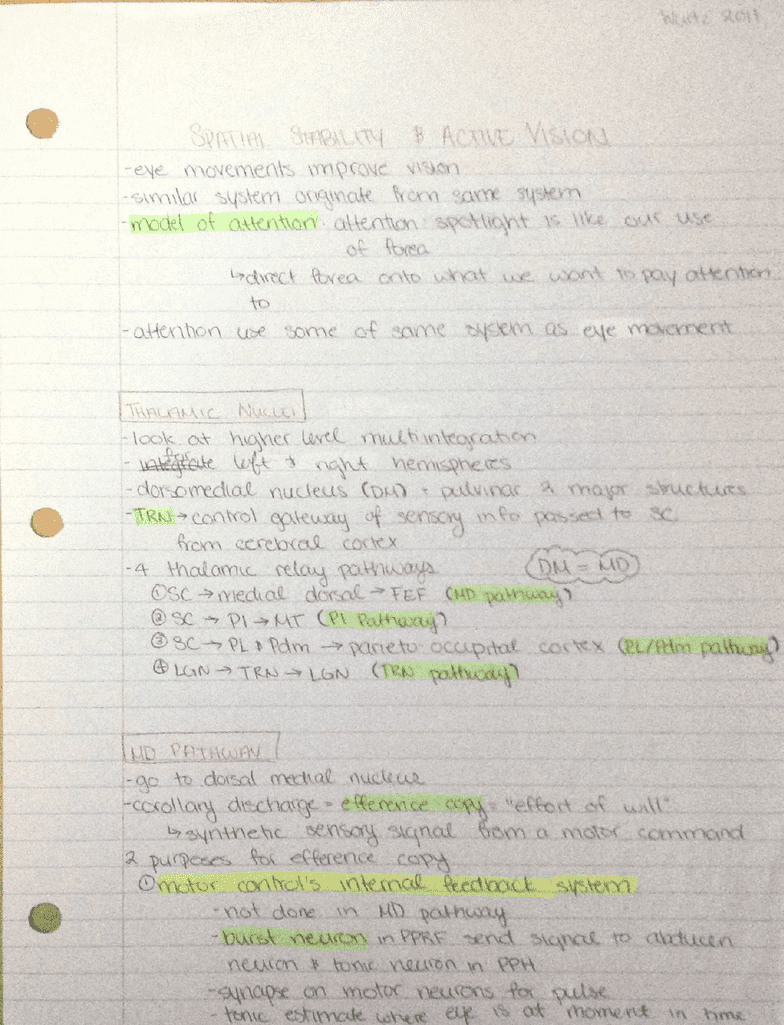 Wurtz 2011
SPATIAL STABILITY & ACTIVE VISION
-eye movements improve vision
-similar system originate from same system
-model of attention: attention spotlight is like our use
of fovea
↳direct fovea onto what we want to pay attention
to
-attention use some of same system as eye movement
THALAMIC NUCLEI
-look at higher level multiintegration
- left & right hemispheres
-dorsomedial nucleus (DM) + pulvinar 2 major structures
-TRN→control gateway of sensory info passed to SC
from cerebral cortex
-4 thalamic relay pathways
DM = MD
①SC→medial dorsal→FEF (MD pathway)
②SC→PI→MT (PI Pathway)
③SC→PL & Pdm→parieto occipital cortex (PL/Pdm pathway)
④LGN→TRN→LGN (TRN pathway)
MD PATHWAY
-go to dorsal medial nucleus
-corollary discharge = efference copy = "effort of will"
↳synthetic sensory signal from a motor command
2 purposes for efference copy
①motor control's internal feedback system
-not done in MD pathway
-burst neuron in PPRF send signal to abducen
neuron & tonic neuron in PPH
-synapse on motor neurons for pulse
-tonic estimate where eye is at moment in time